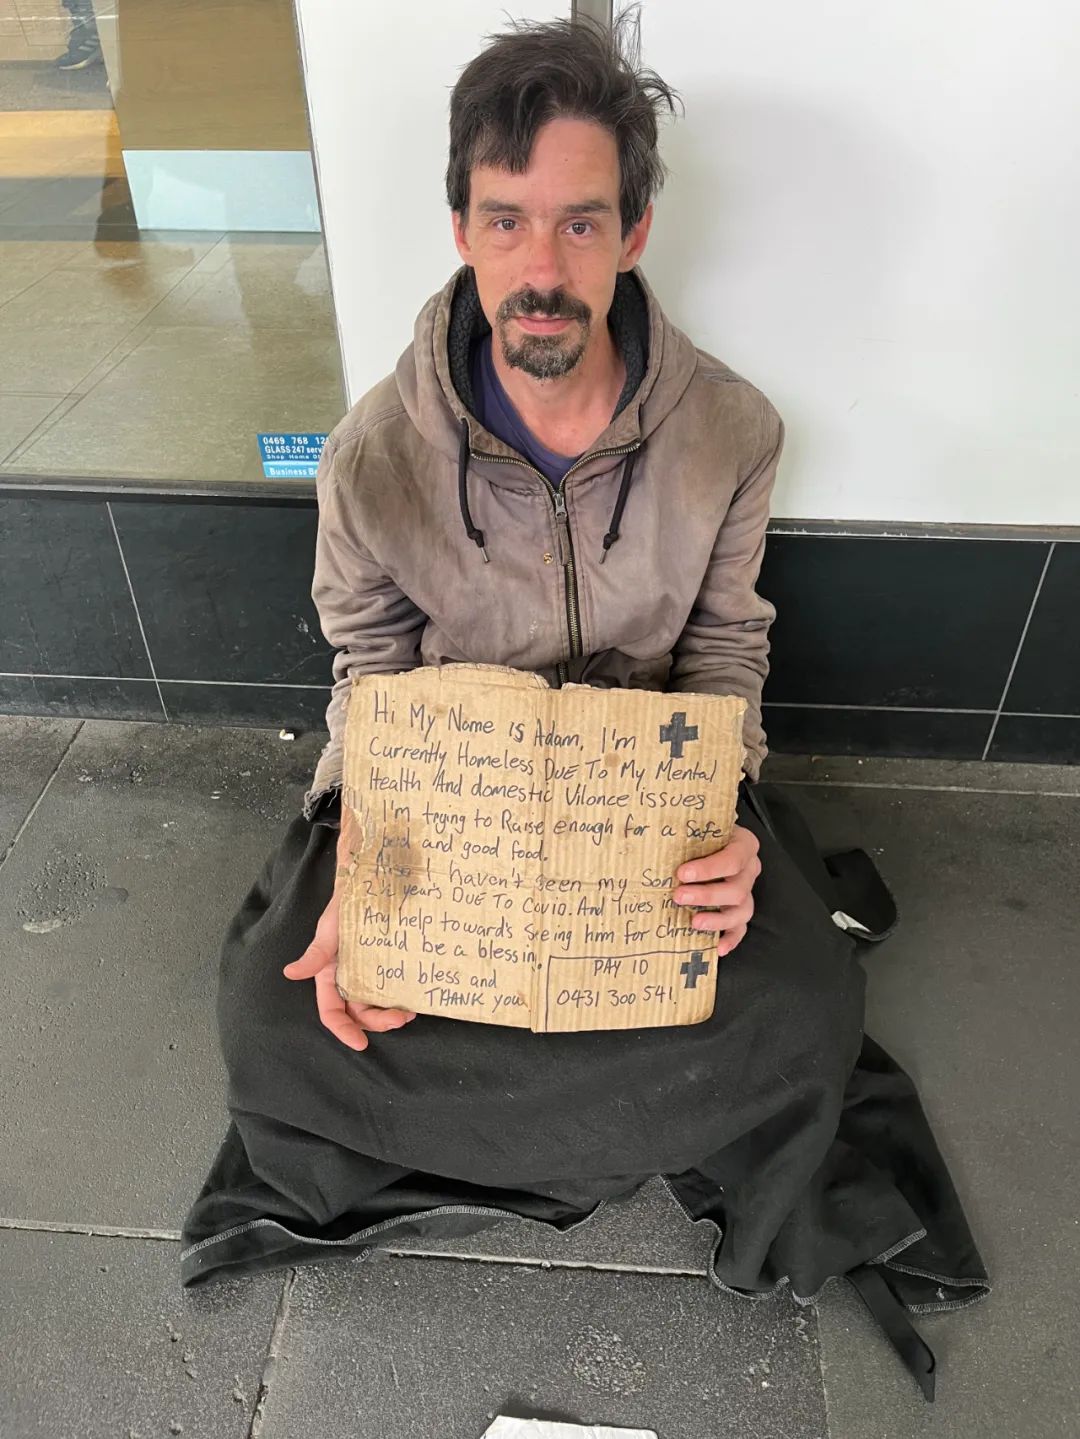 0469 768 12
GLASS 247 serv
Shop Home O
Business B
Hi My Name is Adam, I'm
Currently Homeless DUE To My Mental
Health And domestic Vilonce issues
I'm trying to Raise enough for a Safe
bed and good food.
Also I haven't seen my Son
2½ year's DUE TO Covid. And lives in
Any help toward's Seeing him for Christ
would be a blessing.
god bless and
THANK you
PAY ID
0431 300 541.